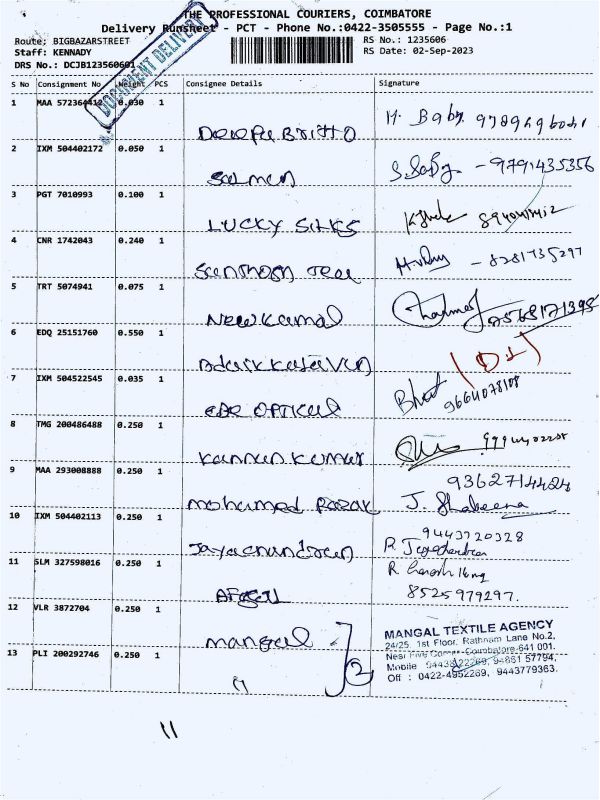 THE PROFESSIONAL COURIERS, COIMBATORE
Delivery Runsheet - PCT - Phone No.:0422-3505555 - Page No.:1
Route: BIGBAZARSTREET RS No.: 1235606
Staff: KENNADY RS Date: 02-Sep-2023
DRS No.: DCJB123560601
DOCUMENT DELIVERY
S No Consignment No Weight PCS Consignee Details Signature
1 MAA 572364412 0.030 1
Deepu BRITTO
2 IXM 504402172 0.050 1 - 9791435356
Salmen
3 PGT 7010993 0.100 1
LUCKY SILKS
4 CNR 1742043 0.240 1 - 8281735297
Santhosh
5 TRT 5074941 0.075 1
New Kamal
6 EDQ 25151760 0.550 1
7 IXM 504522545 0.035 1 Bhat 9664078108
OPTICAL
8 TMG 200486488 0.250 1
Kannan Kumar
9 MAA 293008888 0.250 1 9362714424
mohamed Razak J. Shabeena
10 IXM 504402113 0.250 1 9443720328
Jayachandran
11 SLM 327598016 0.250 1
8525979297.
12 VLR 3872704 0.250 1
mangal 2
13 PLI 200292746 0.250 1
"
MANGAL TEXTILE AGENCY
24/25, 1st Floor, Rathnam Lane No.2,
Near Five Corner, Coimbatore-641 001.
Mobile 94438 22269, 94861 57794,
Off : 0422-4952269, 9443779363.
11